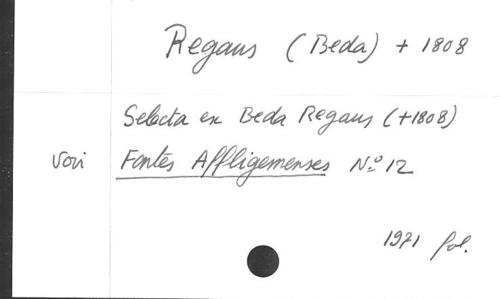 Regaus (Beda) + 1808
Selecta ex Beda Regaus (+1808)
Voir Fontes Affligemenses N.o 12
1971 fol.